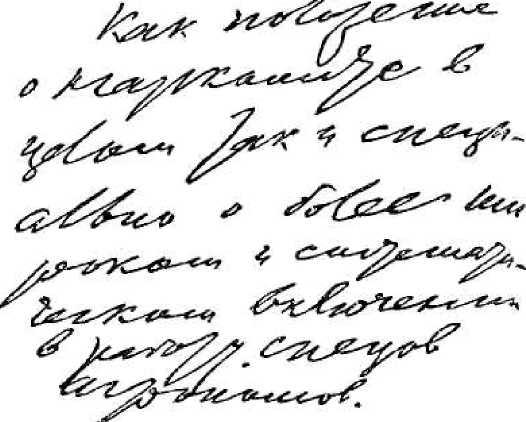 Как положение
о наркомзе в
целом так и специ-
ально о более ши
роком и система-
ческом включении
в работу спецов
агрономов.